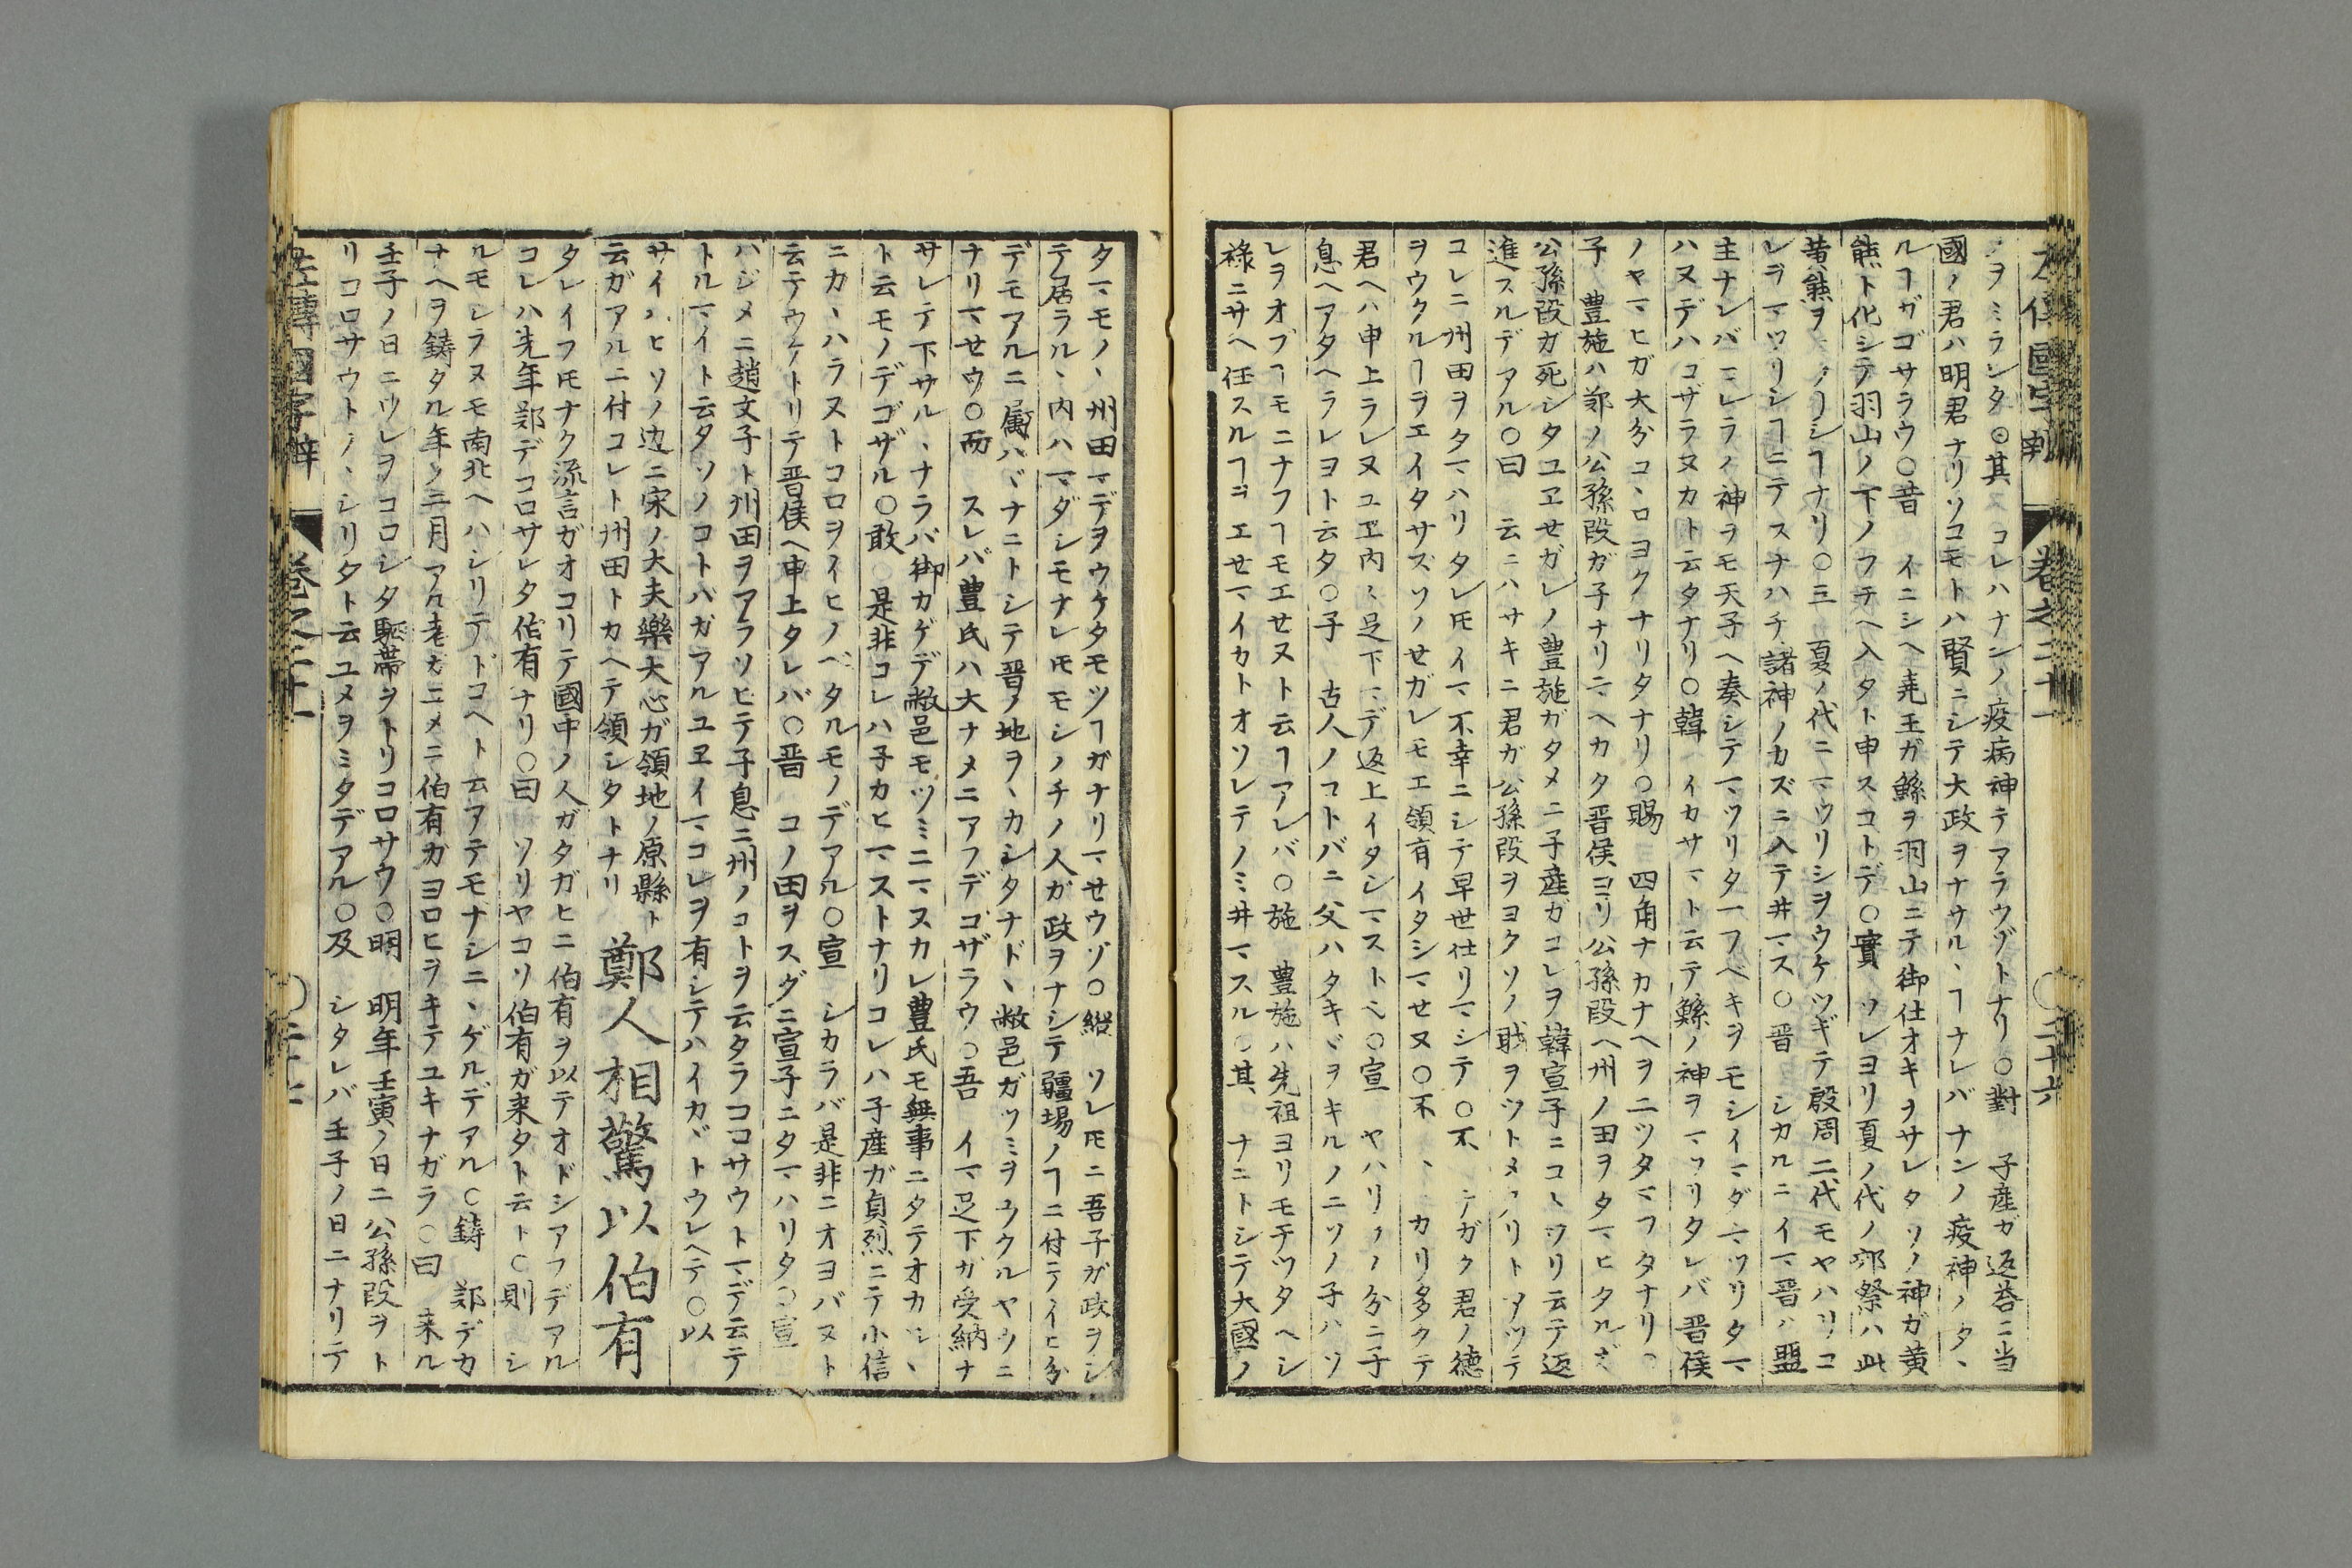 左傳國字辯 巻之二十一 〇二十六
ヲミランタ〇其 コレハナンノ疫病神テアラウゾトナリ〇對 子産ガ返荅ニ当
國ノ君ハ明君ナリソコモトハ賢ニシテ大政ヲナサル、ヿナレバナンノ疫神ノタ、
ルヿガゴサラウ〇昔 イニシヘ尭王ガ鯀ヲ羽山ニテ御仕オキヲサレタソノ神ガ黄
熊ト化シテ羽山ノ下ノフチヘ入タト申スコトデ〇實 ソレヨリ夏ノ代ノ郊祭ハ此
黄熊ヲ シヿナリ〇三 夏ノ代ニマツリシヲウケツギテ殷周二代モヤハリコ
レヲマツリシヿニテスナハチ諸神ノカズニ入テ井マス〇晋 シカルニイマ晋ハ盟
主ナレバコレラノ神ヲモ天子ヘ奏シテマツリタマフベキヲモシイマダマツリタマ
ハヌデハコザラヌカト云タナリ〇韓 イカサマト云テ鯀ノ神ヲマツリタレバ晋侯
ノヤマヒガ大分コ、ロヨクナリタナリ〇賜 四角ナカナヘヲ二ツタマフタナリ〇
子 豊施ハ鄭ノ公孫段ガ子ナリ二、ヘカタ晋侯ヨリ公孫段ヘ州ノ田ヲタマヒタルガ
公孫段ガ死シタユヱせガレノ豊施ガタメニ子産ガコレヲ韓宣子ニコトワリ云テ返
進スルデアル〇曰 云ニハサキニ君ガ公孫段ヲヨクソノ職ヲツトメタリトアツテ
コレニ州田ヲタマハリタレ𪜈イマ不幸ニシテ早世仕リマシテ〇不 ナガク君ノ徳
ヲウクルヿヲエイタサズソノせガレモエ領有イタシマせヌ〇不 、カリ多クテ
君ヘハ申上ラレヌユヱ内、足下マデ返上イタシマスト也〇宣 ヤハリソノ分ニ子
息ヘアタヘラレヨト云タ〇子 古人ノコトバニ父ハタキヾヲキルノニソノ子ハソ
レヲオブヿモニナフヿモエせヌト云ヿアレバ〇施 豊施ハ先祖ヨリモチツタヘシ
祿ニサヘ任スルヿヲエせマイカトオソレテノミ井マスル〇其 ナニトシテ大國ノ
タマモノ、州田マデヲウケタモツヿガナリマせウゾ〇縦 ソレ𪜈ニ吾子ガ政ヲシ
テ居ラル、内ハマダシモナレ𪜈モシノチノ人ガ政ヲナシテ疆場ノヿニ付テイヒ分
デモアルニ属ハヾナニトシテ晋ノ地ヲ、カシタナド、敝邑ガツミヲウクルヤウニ
ナリマせウ〇而 スレバ豊氏ハ大ナメニアフデゴザラウ〇吾 イマ足下ガ受納ナ
サレテ下サル、ナラバ御カゲデ敝邑モツミニマヌカレ豊氏モ無事ニタテオカル、
ト云モノデゴザル〇敢 是非コレハ子カヒマストナリコレハ子産ガ貞烈ニテ小信
ニカ、ハラヌトコロヲイヒノベタルモノデアル〇宣 シカラバ是非ニオヨバヌト
云テウケトリテ晋侯ヘ申上タレバ〇晋 コノ田ヲスグニ宣子ニタマハリタ〇宣
ハジメニ趙文子ト州田ヲアラソヒテ子息ニ州ノコトヲ云タラココサウトマデ云テ
トルマイト云タソノコトバガアルユヱイマコレヲ有シテハイカヾトウレヘテ〇以
サイハヒソノ辺ニ宋ノ大夫樂大心ガ領地ノ原縣ト
云ガアルニ付コレト州田トカヘテ領シタトナリ 鄭人相驚以伯有
タレイフ𪜈ナク流言ガオコリテ國中ノ人ガタガヒニ伯有ヲ以テオドシアフデアル
コレハ先年鄭デコロサレタ伯有ナリ〇曰 ソリヤコリ伯有ガ来タト云ト〇則 シ
ルモシラヌモ南北ヘハシリテドコヘト云アテモナシニ、ゲルデアル〇鋳 鄭デカ
ナヘヲ鋳タル年ノ三月 伯有ガヨロヒヲキテユキナガラ〇曰 来ル
壬子ノ日ニワレヲコロシタ駟帯ヲトリコロサウ〇明 明年壬寅ノ日ニ公孫段ヲト
リコロサウトノ、シリタト云ユメヲミタデアル〇及 シタレバ壬子ノ日ニナリテ
左傳國字辯 巻之二十一 〇二十七